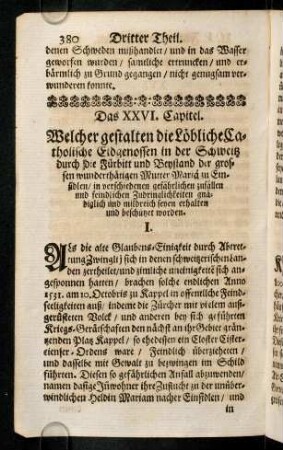 380 Dritter Theil.
denen Schweden mißhandlet / und in das Wasser
geworfen wurden / samtliche ertruncken / und er-
bärmlich zu Grund gegangen / nicht genugsam ver-
wunderen konnte.
Das XXVI. Capitel.
Welcher gestalten die Löbliche Ca-
tholische Eidgenossen in der Schweitz
durch die Fürbitt und Beystand der gros-
sen wunderthätigen Mutter Mariä zu Ein-
sidlen / in verschiedenen gefährlichen zufällen
und feindlichen Zudringlichkeiten gnä-
diglich und mildreich seyen erhalten
und beschützet worden.
I.
Als die alte Glaubens-Einigkeit durch Abtret-
tung Zwinglij sich in denen schweitzerischen Lan-
den zertheilet / und zimliche uneinigkeitē sich an-
gesponnen hatten / brachen solche endlichen Anno
1531. am 10. Octobris zu Kappel in offentliche Feind-
seeligkeiten auß; indeme die Zürcher mit vielem auß-
gerüsteten Volck / und anderen bey sich geführten
Kriegs-Gerätschaften den nächst an ihr Gebiet grän-
zenden Platz Kappel / so ehedessen ein Closter Cister-
cienser-Ordens ware / Feindlich überziehetten /
und dasselbe mit Gewalt zu bezwingen im Schild
führten. Diesen so gefährlichen Anfall abzuwenden /
namen dasige Jnwohner ihre Zusucht zu der unüber-
windlichen Heldin Mariam nacher Einsidlen / und
in